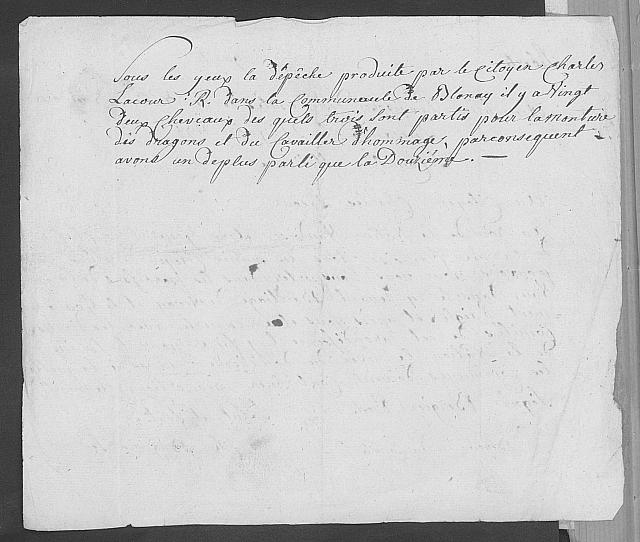 Sous les yeux la dépêche produite par le Citoyen Charles
Lacour : R. dans la Communauté de Blonay il y a Vingt
deux Chevaux des quels trois sont partis pour la monture
des dragons et du Cavailler d'hommage, parconsequent
avons un deplus parti que la Douziéme. —